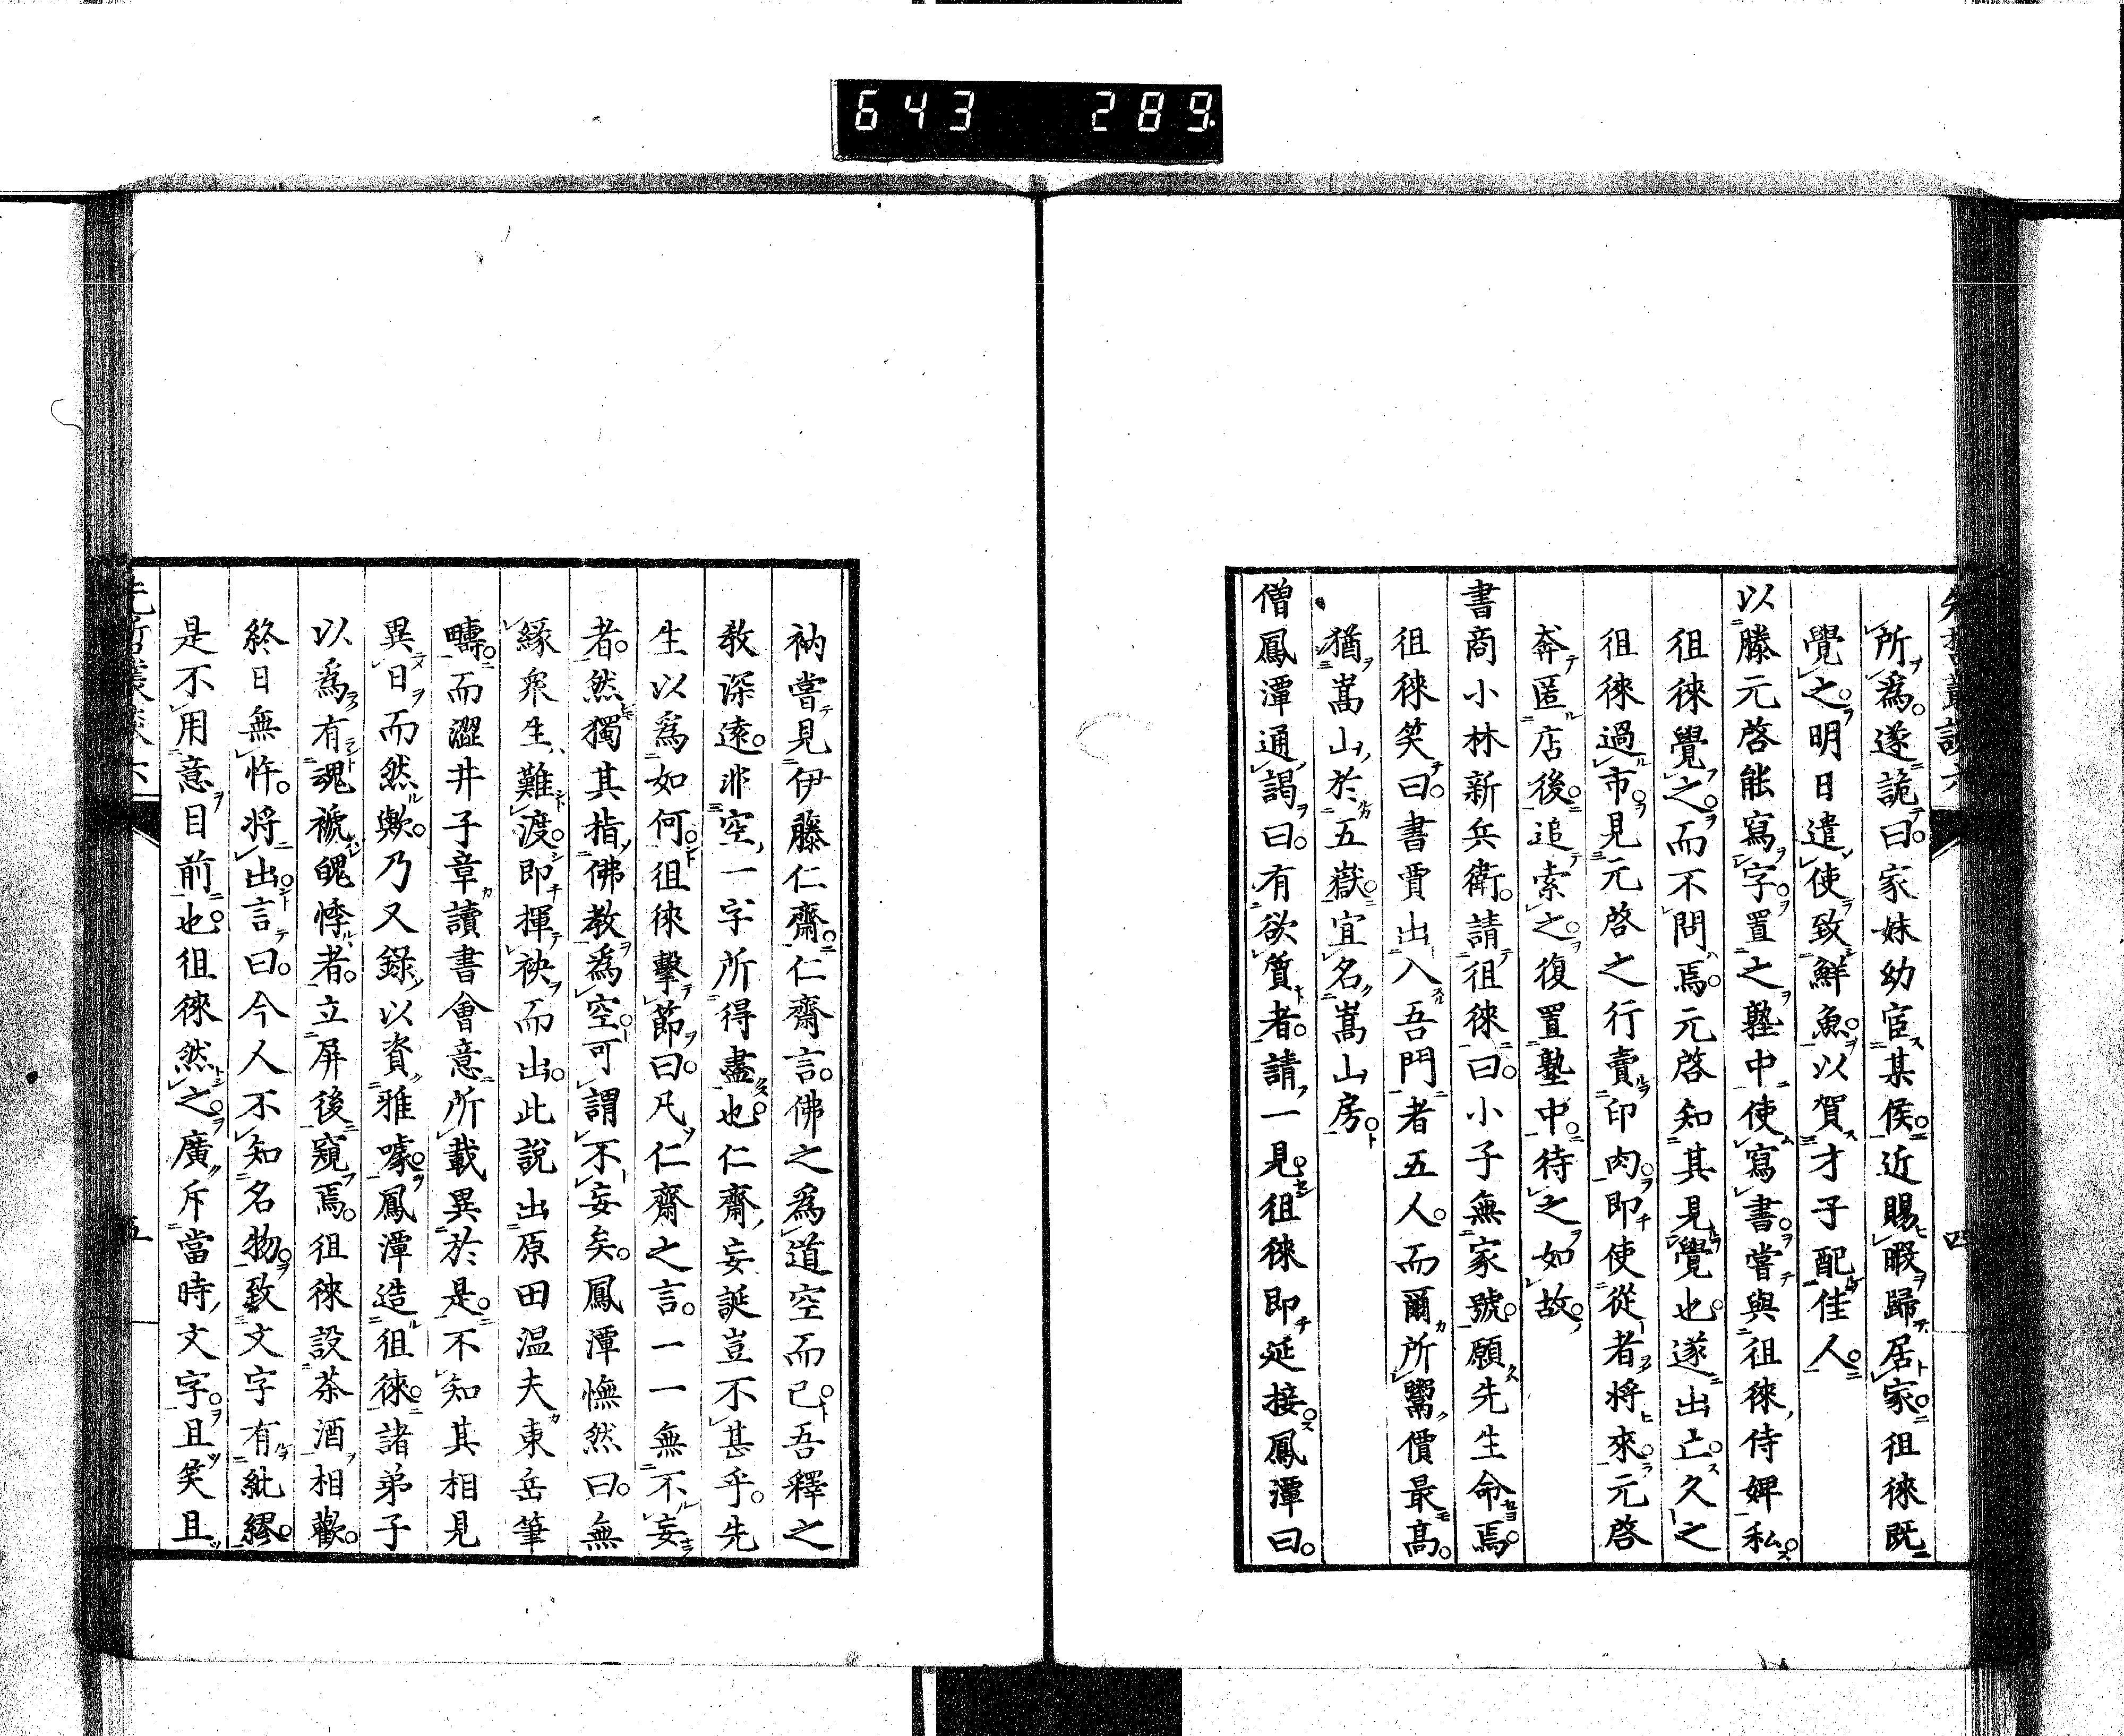 643 289
先哲叢談六 四
所爲。遂詭曰。家妹幼宦某侯。近賜暇歸居家。徂徠既
覺之。明日遣使致鮮魚。以賀才子配佳人。
以滕元啓能寫字。置之塾中使寫書。嘗與徂徠侍婢私。
徂徠覺之。而不問焉。元啓知其見覺也。遂出亡。久之
徂徠過市。見元啓之行賣印肉。即使從者將來。元啓
奔匿店後。追索之。復置塾中。待之如故。
書商小林新兵衛。請徂徠曰。小子無家號。願先生命焉。
徂徠笑曰。書賈出入吾門者五人。而爾所鬻價最高。
猶嵩山於五嶽。宜名嵩山房。
僧鳳潭通謁曰。有欲質者。請一見。徂徠即延接。鳳潭曰。
衲嘗見伊藤仁齋。仁齋言。佛之爲道空而已。吾釋之
教深遠。非空一字所得盡也。仁齋妄誕豈不甚乎。先
生以爲如何。徂徠擊節曰。凡仁齋之言。一一無不妄
者。然獨其指佛教爲空。可謂不妄矣。鳳潭憮然曰。無
緣衆生難渡。即揮袂而出。此說出原田温夫東岳筆
疇。而澀井子章讀書會意所載異於是。不知其相見
異日而然歟。乃又錄以資雅噱。鳳潭造徂徠。諸弟子
以爲有魂褫魄悸者。立屏後窺焉。徂徠設茶酒相歡。
終日無忤。將出言曰。今人不知名物。致文字有紕繆。
是不用意目前也。徂徠然之。廣斥當時文字。且笑且
先哲叢談六 五